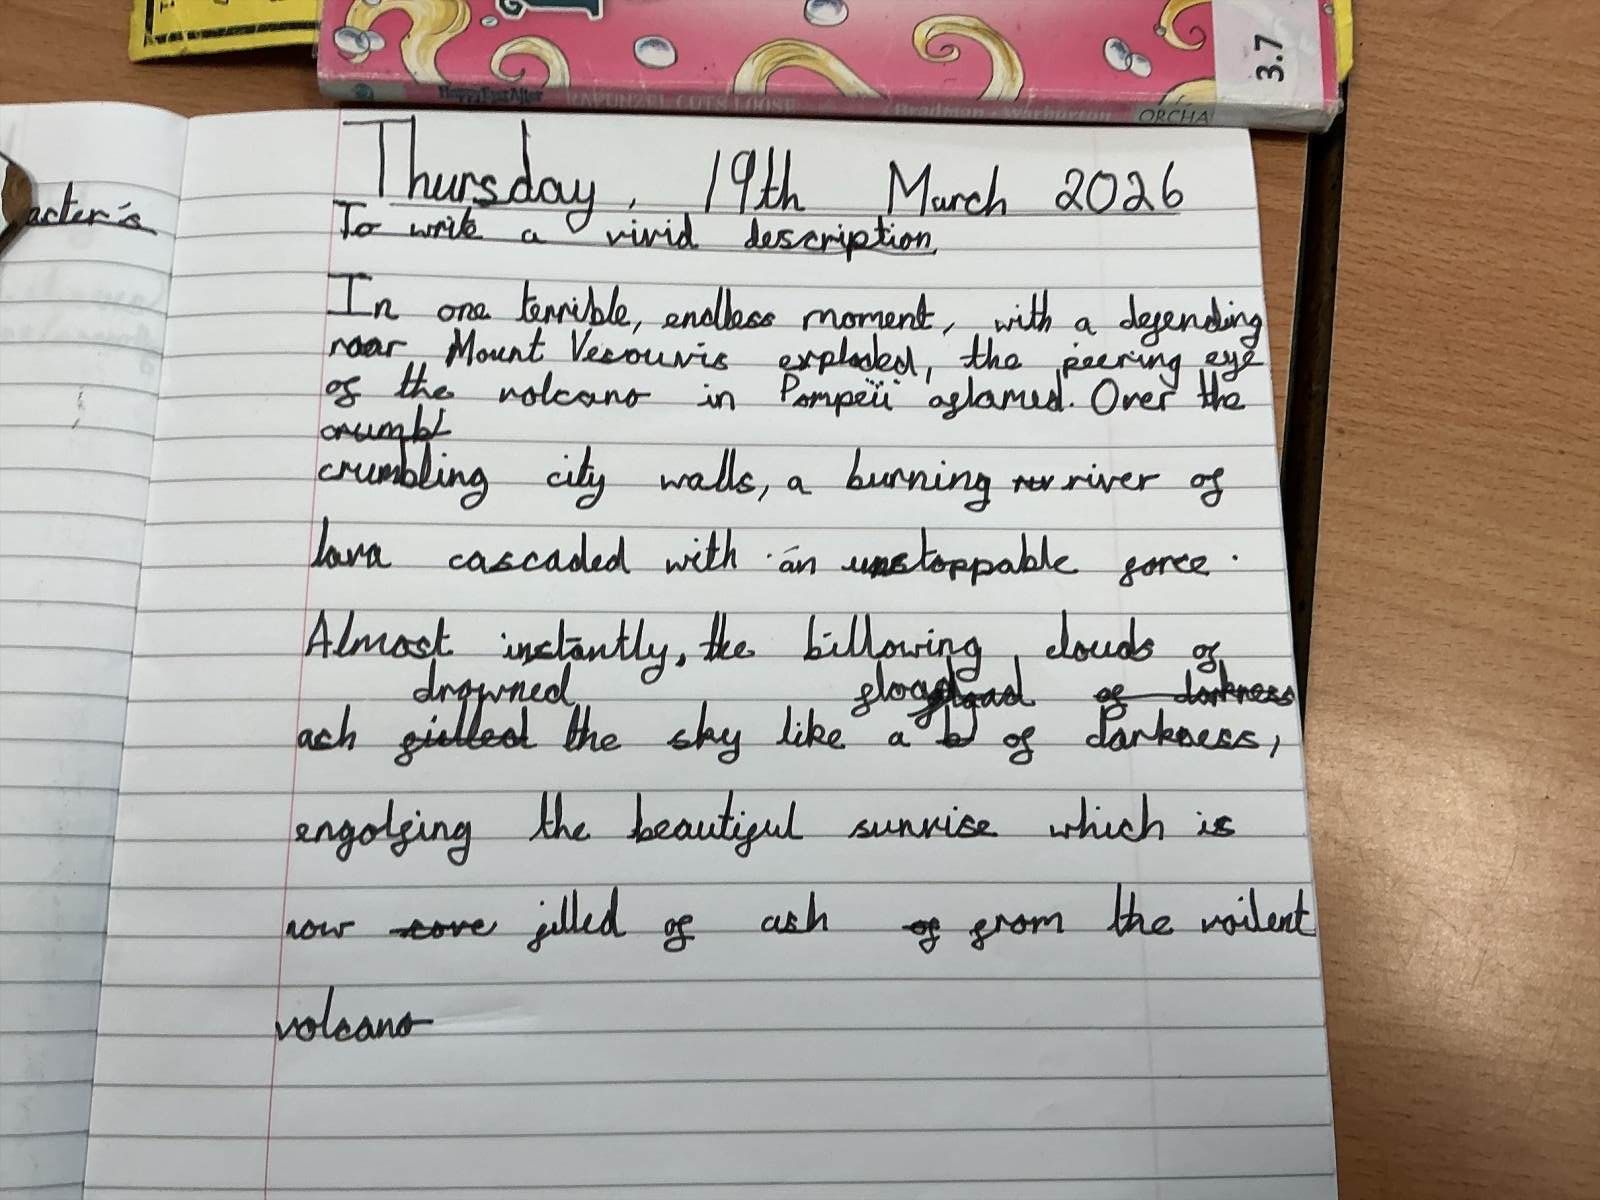 3.7
HappyEverAfter RAPUNZEL CUTS LOOSE Bradman Warburton ORCHA
acter's
Thursday, 19th March 2026
To write a vivid description
In one terrible, endless moment, with a defending
roar Mount Vesouvis exploded, the peering eye
of the volcano in Pompeii aflamed. Over the
crumbl
crumbling city walls, a burning rev river of
lava cascaded with an unstoppable force.
Almost instantly, the billowing clouds of
drowned flood of darkness
ash filled the sky like a b of Darkness,
engolfing the beautiful sunrise which is
now cove filled of ash of from the voilent
volcano